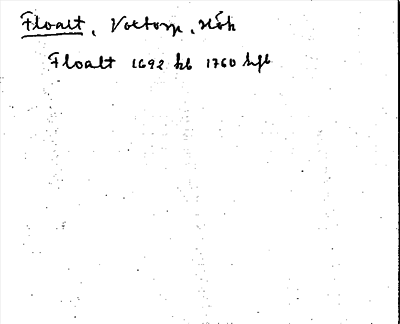 Floalt, Voxtorp, Möh
Floalt 1692 kb 1760 hfl